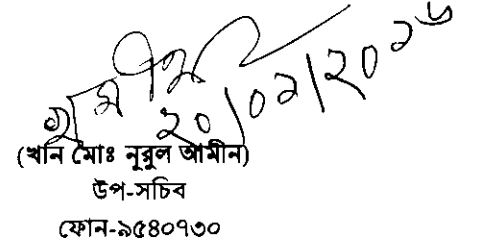 ২০/০২/২০১৬
(খান মোঃ নুরুল আমীন)
উপ-সচিব
ফোন-৯৫৪০৭৩০